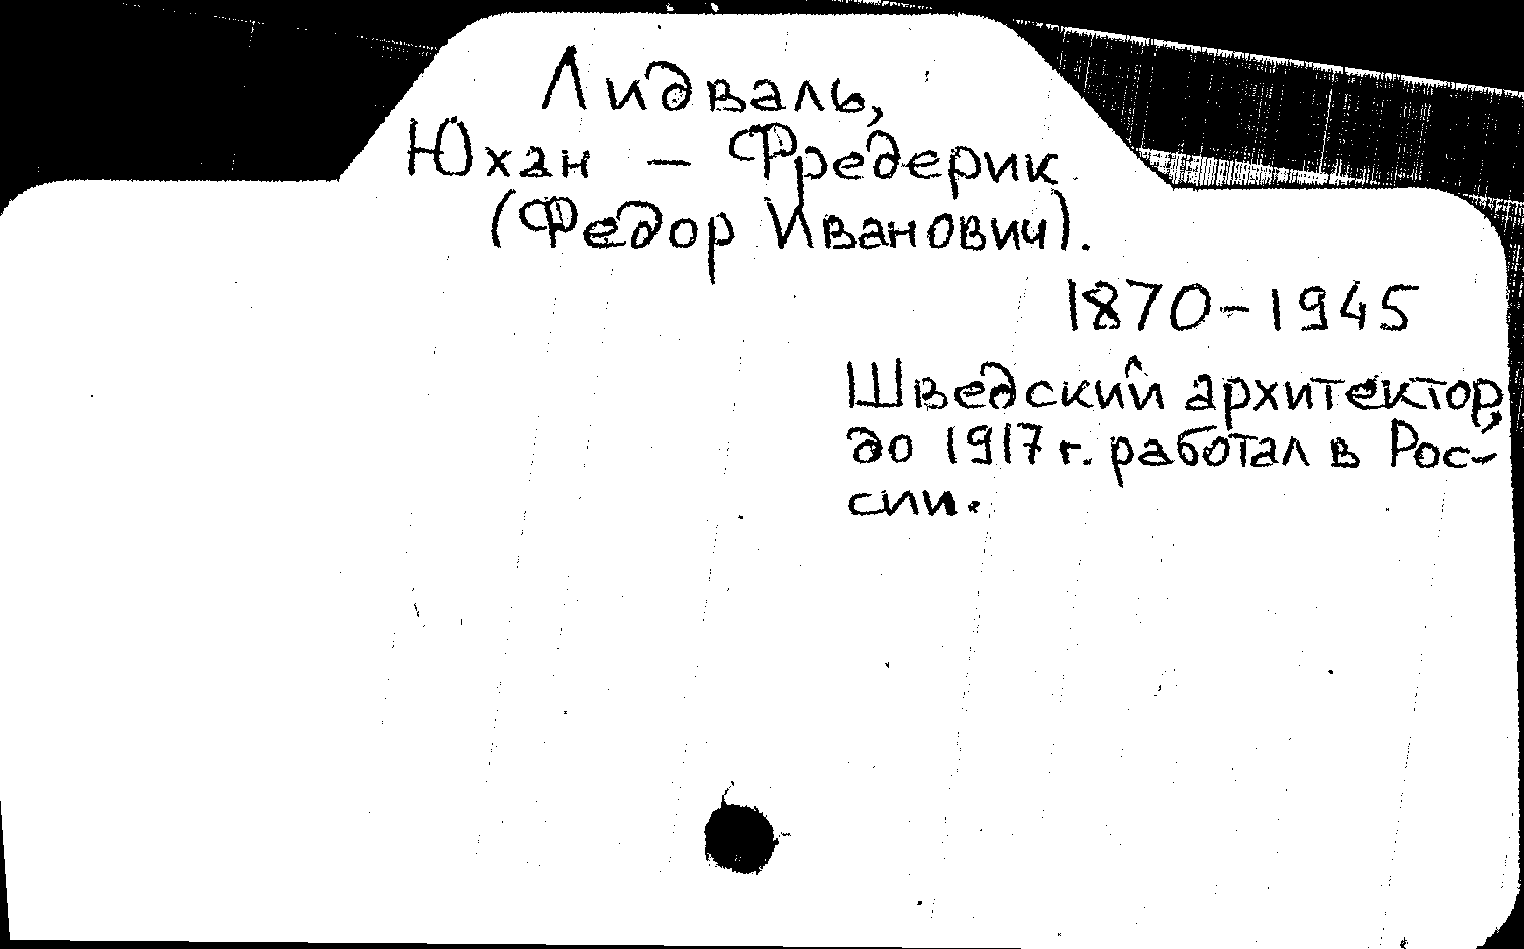 Лидваль,
Юхан - Фредерик
(Федор Иванович).
1870-1945
Шведский архитектор,
до 1917 г. работал в Рос-
сии.